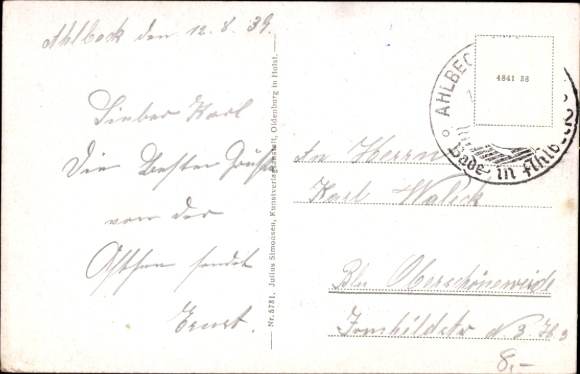 Ahlbeck den 12.8.39.
Lieber Karl
Die Besten Grüße
von der
Ostsee sendet
Ernst.
Nr. 5781. Julius Simonsen, Kunstverlagsanstalt, Oldenburg in Holst.
4841 38
AHLBEC
Bade in Ahlb
An Herrn
Karl Walick
Bln Oberschöneweide
N 3
8,-